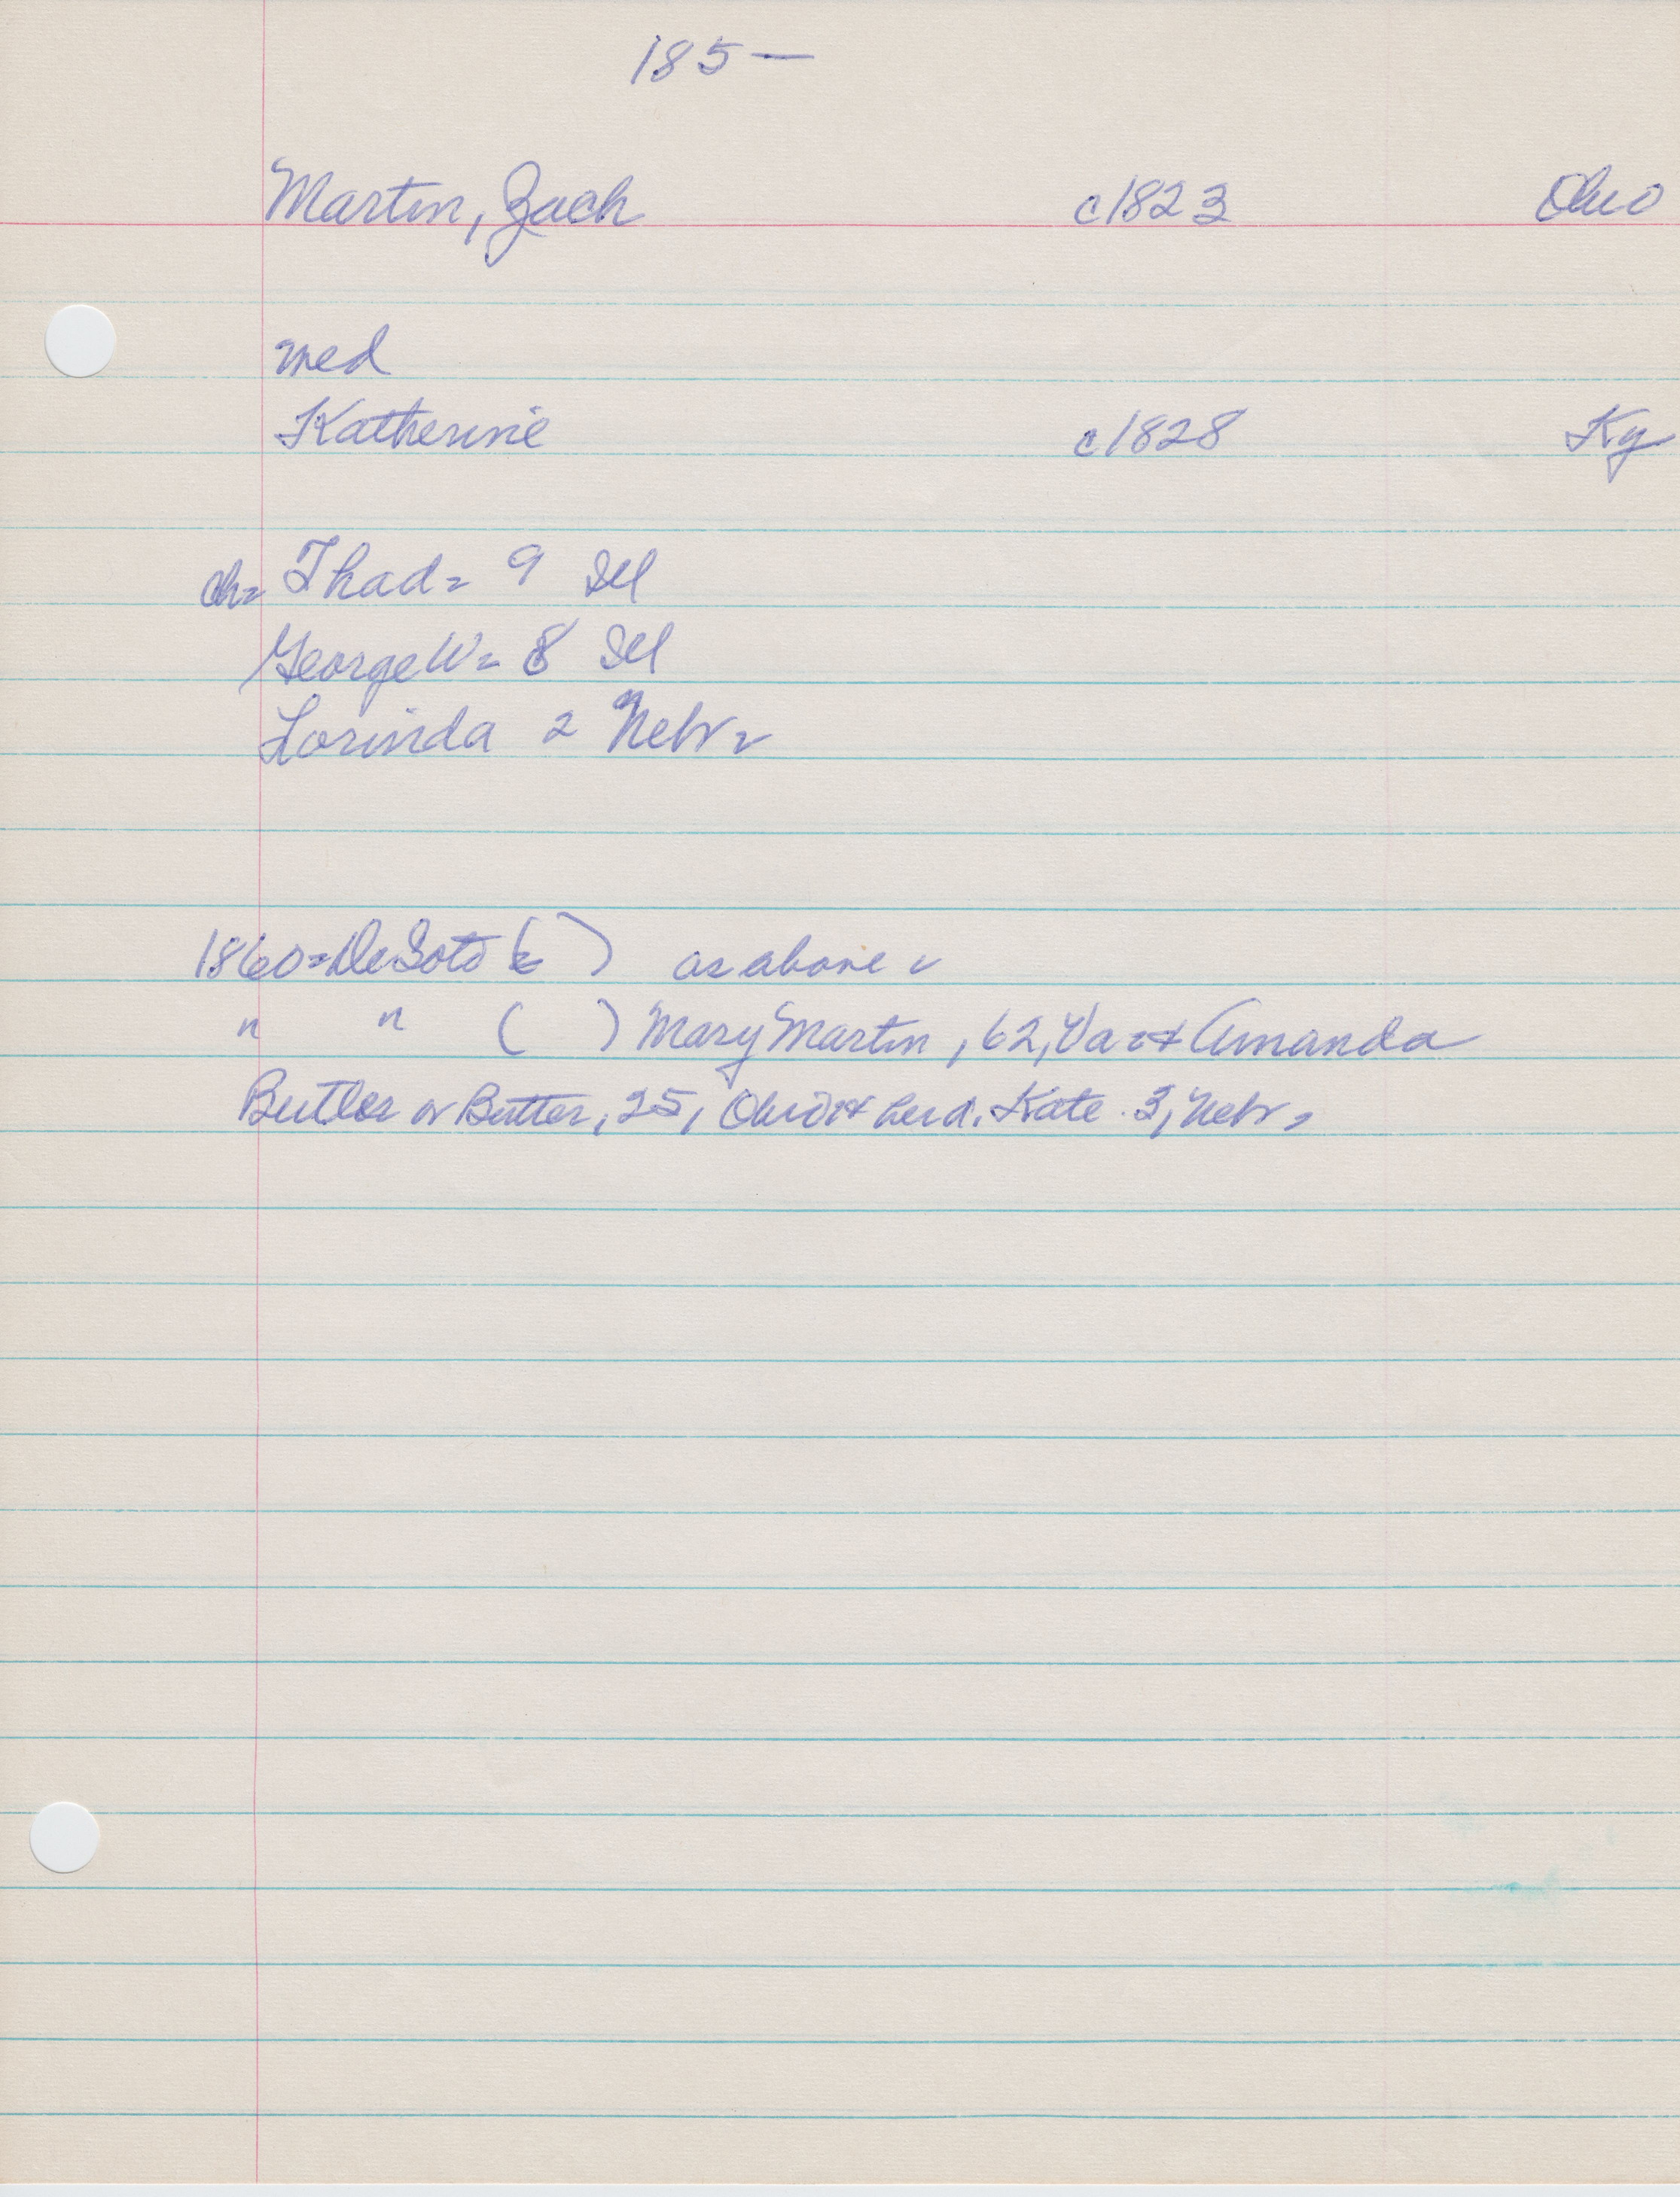 185—
Martin, Zach c1823 Ohio
med
Katherine c1828 Ky
ch= Thad= 9 Ill
George W= 8 Ill
Lorinda 2 Nebr=
1860=DeSoto ( ) as above
" " ( ) Mary Martin, 62, Va=& Amanda
Butler or Butter, 25, Ohio=& her d. Kate 3, Nebr=